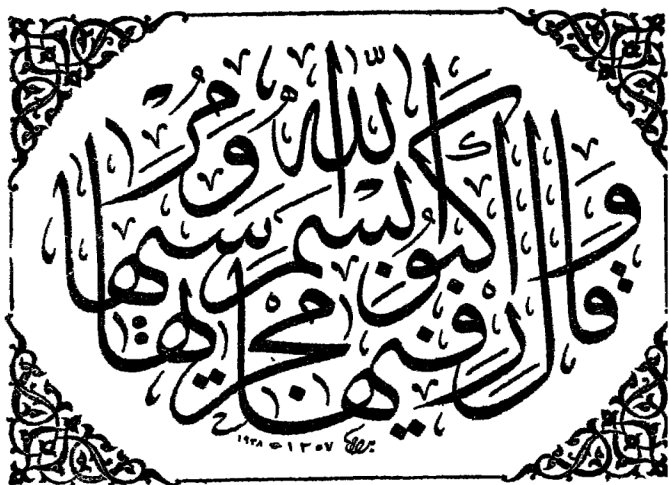 وقال اركبوا فيها بسم الله مجريها ومرسيها
١٣٥٧ ١٩٣٨